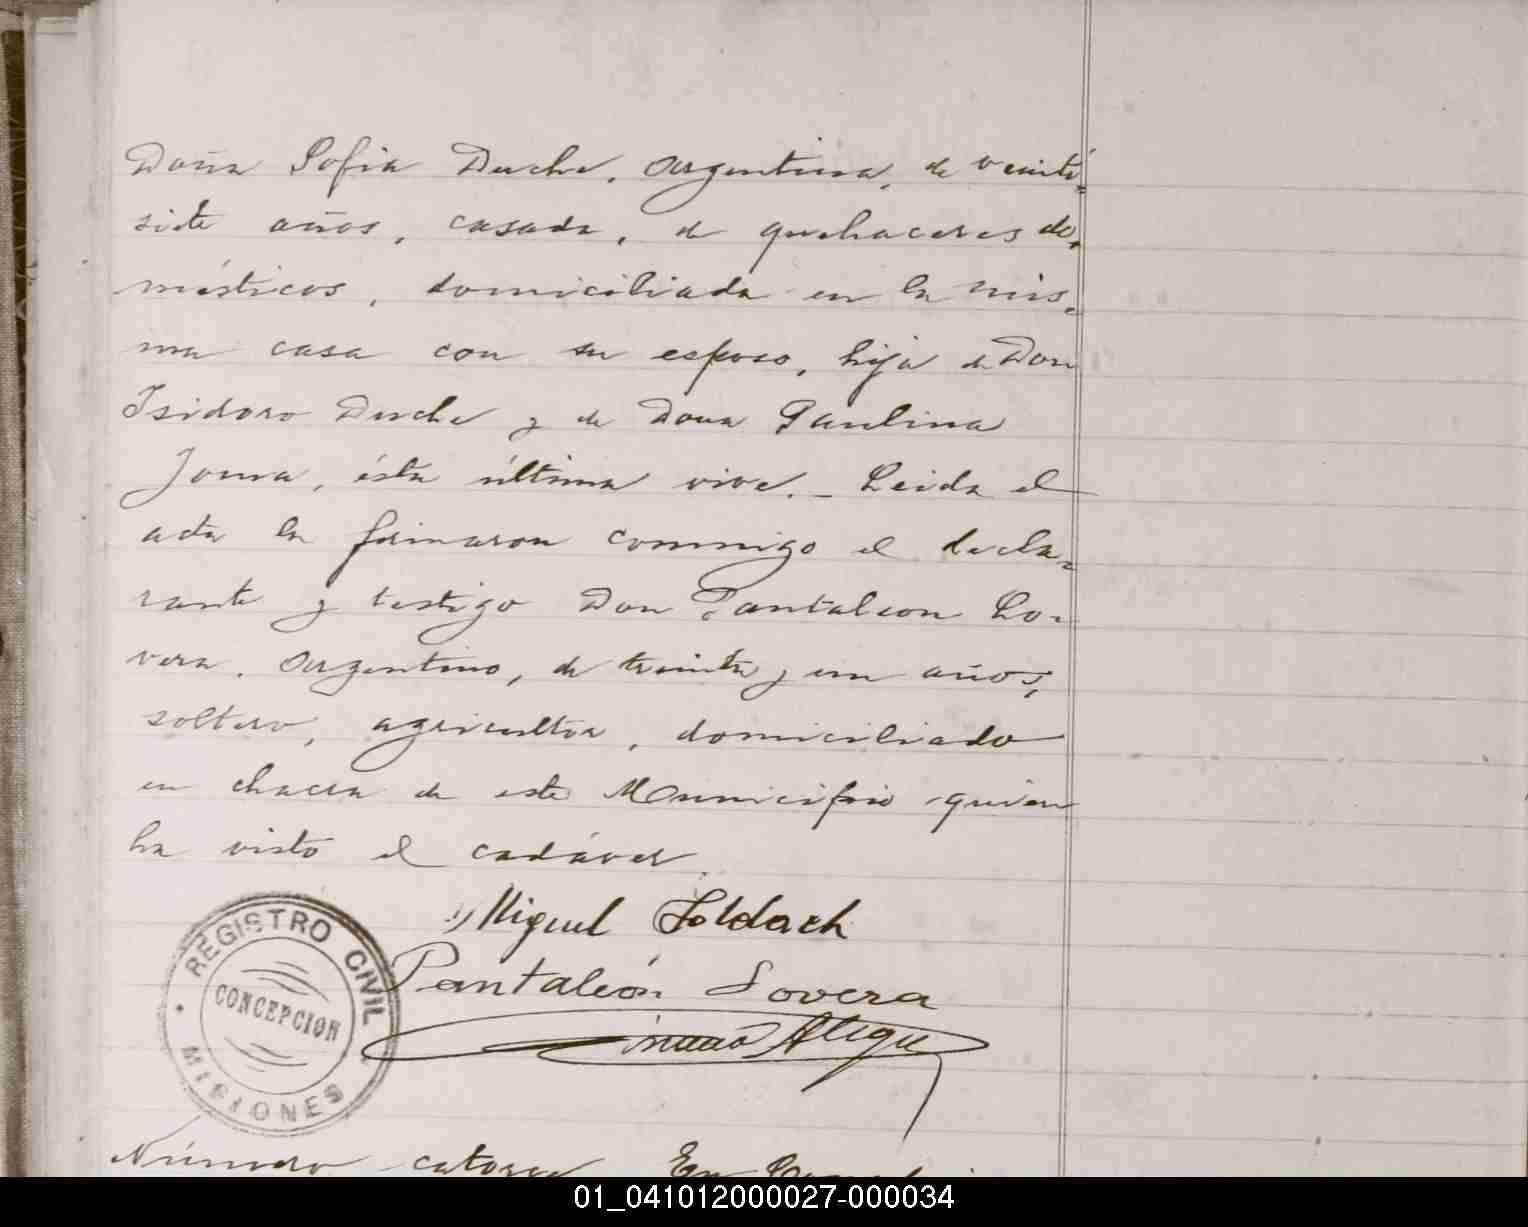 Doña Sofia Duche, argentina, de veinti=
siete años, casada, de quehaceres do=
mésticos, domiciliada en la mis=
ma casa con su esposo, hija de Don
Isidoro Duche y de Doña Paulina
Joura, ésta última vive. _ Leida el
acta la firmaron conmigo el decla=
rante y testigo Don Pantaleon Lo=
vera, argentino, de treinta y un años,
soltero, agricultor, domiciliado
en chacra de este Municipio quien
ha visto el cadáver.
Miguel Soldach
Pantaleón Lovera
REGISTRO CIVIL
CONCEPCION
MISIONES
Número catorce En
01_041012000027-000034